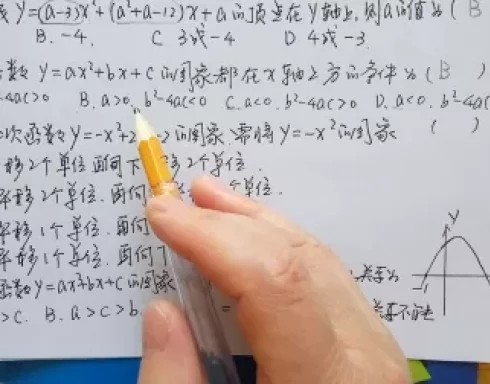 y=(a-3)x²+(a²+a-12)x+a的顶点在y轴上,则a的值为(B
B. -4. C 3或-4 D 4或-3
函数 y=ax²+bx+c的图象都在x轴上方的条件为(B)
-4ac>0 B. a>0, b²-4ac<0 C. a<0, b²-4ac>0 D. a<0, b²-4ac
次函数y=-x² 的图象,需将y=-x²的图象 ( )
移2个单位,再向下 移2个单位.
平移2个单位.再向 个单位.
平移1个单位,再向
平移1个单位.再向下
函数y=ax²+bx+c的图象
>c. B. a>c>b.
Y
-1